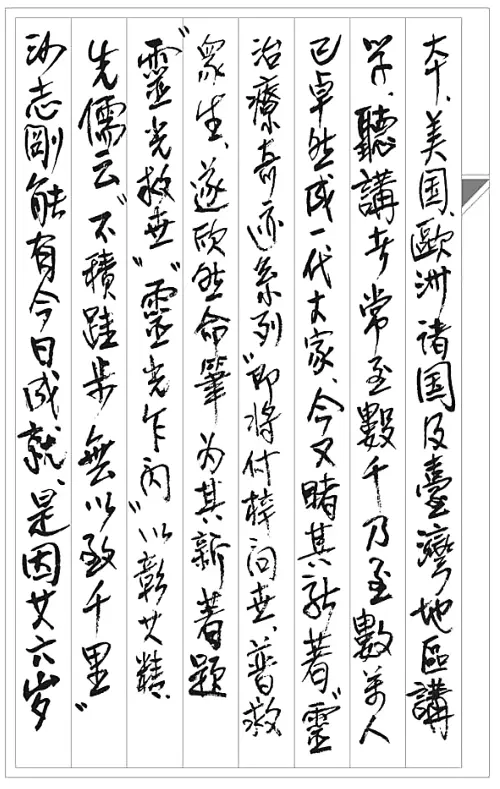 本、美国、歐洲诸国及臺灣地區講
学、聽講者常至數千乃至數萬人
已卓然成一代大家、今又睹其新著“靈
治療奇迹系列”即将付梓问世、普救
衆生、遂欣然命筆为其新著題
“靈光救世”“靈光乍闪”以彰其精、
先儒云“不積跬步無以致千里”
沙志剛能有今日成就、是因其六岁